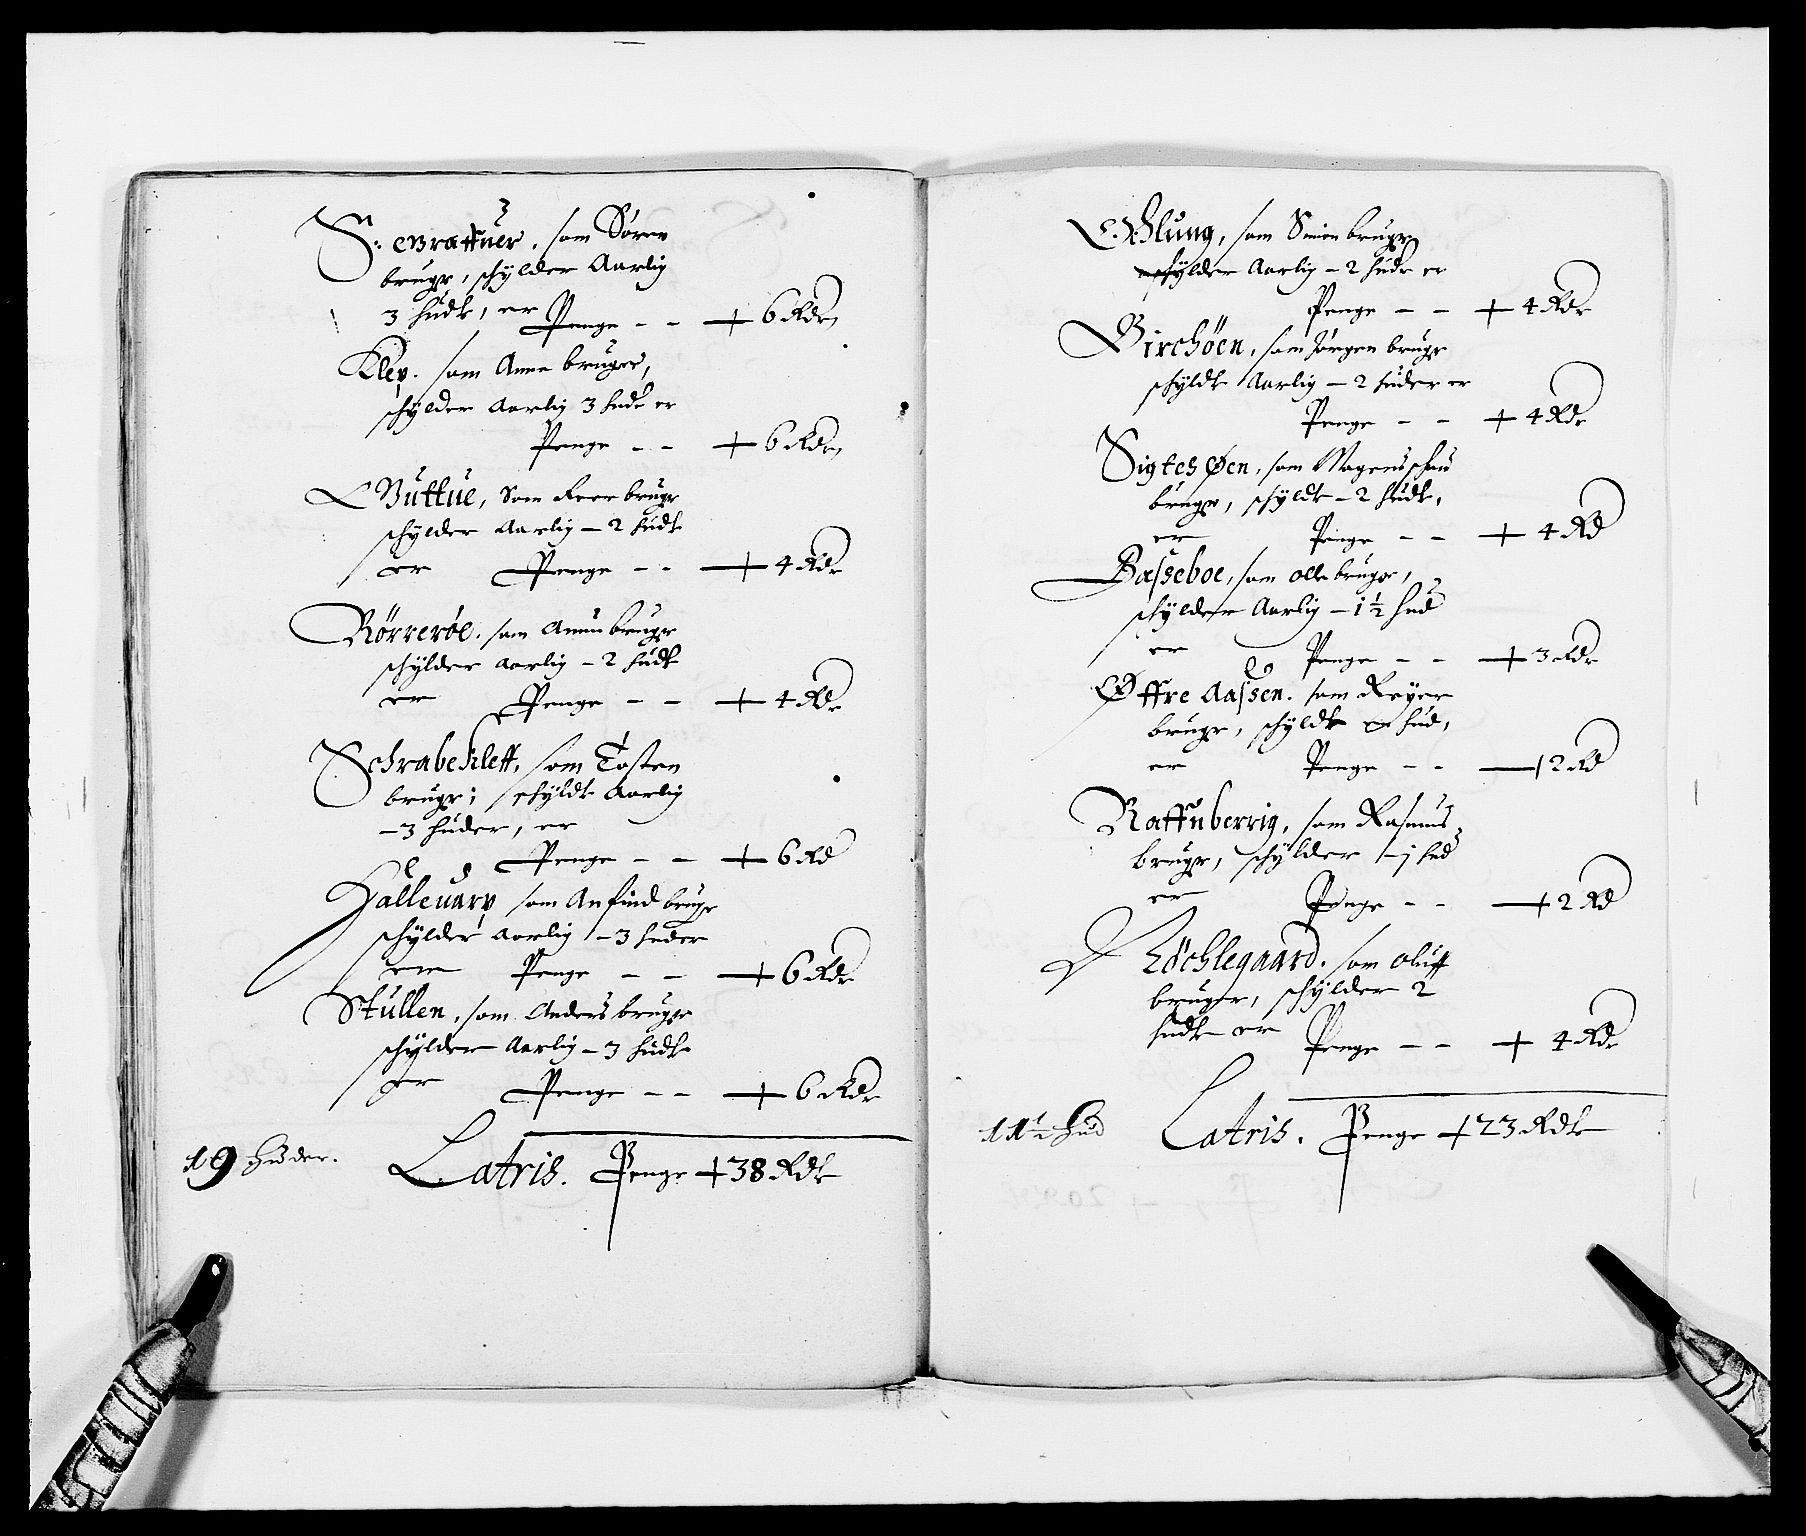 S: Brattuer, som Sören
bruger, schÿlder Aarlig
3 hudr, er Penge - - + 6 Rdr
Kley. som Anne bruger,
schÿlder Aarlig 3 hudr er
Penge - - + 6 Rdr
Buttue, som Peer bruger
schÿlder Aarlig - 2 hudr
er Penge - - + 4 Rdr
Rörreröe. som Amun bruger
schÿlder Aarlig - 2 hudr
er Penge - - + 4 Rdr
Schrabeklett, som Tosten
bruger; schÿldr Aarlig
- 3 huder, er
Penge - - + 6 Rd
Halleuarp som Anfind bruger
schÿlder Aarlig - 3 huder
er Penge - - + 6 Rdr
Stullen, som Anders bruger
schÿlder Aarlig - 3 hudr
er Penge - - + 6 Rdr
19 huder. Latris. Penge + 38 Rdr
som Simen bruger
schÿlder Aarlig - 2 hudr er
Penge - - + 4 Rdr
Birchöen, som Jörgen bruger
schÿldr Aarlig - 2 huder er
Penge - - + 4 Rdr
Sigtesøen, som Mogens
bruger, schÿldr - 2 hudr,
er Penge - - + 4 Rd
Basseboe, som Olle bruger,
schÿlder Aarlig - 1½ hud
er Penge - - + 3 Rdr
Øffre Aassen. som Reyer
bruger, schÿldr en hud,
er Penge - - + 2 Rd
Raffnberrig, som Rasmus
bruger, schÿlder - 1 hud
er Penge - - + 2 Rd
Löchlegaard. som Oluff
bruger, schÿlder 2
hudr er Penge - - + 4 Rdr
11½ hud Latris. Penge + 23 Rdr